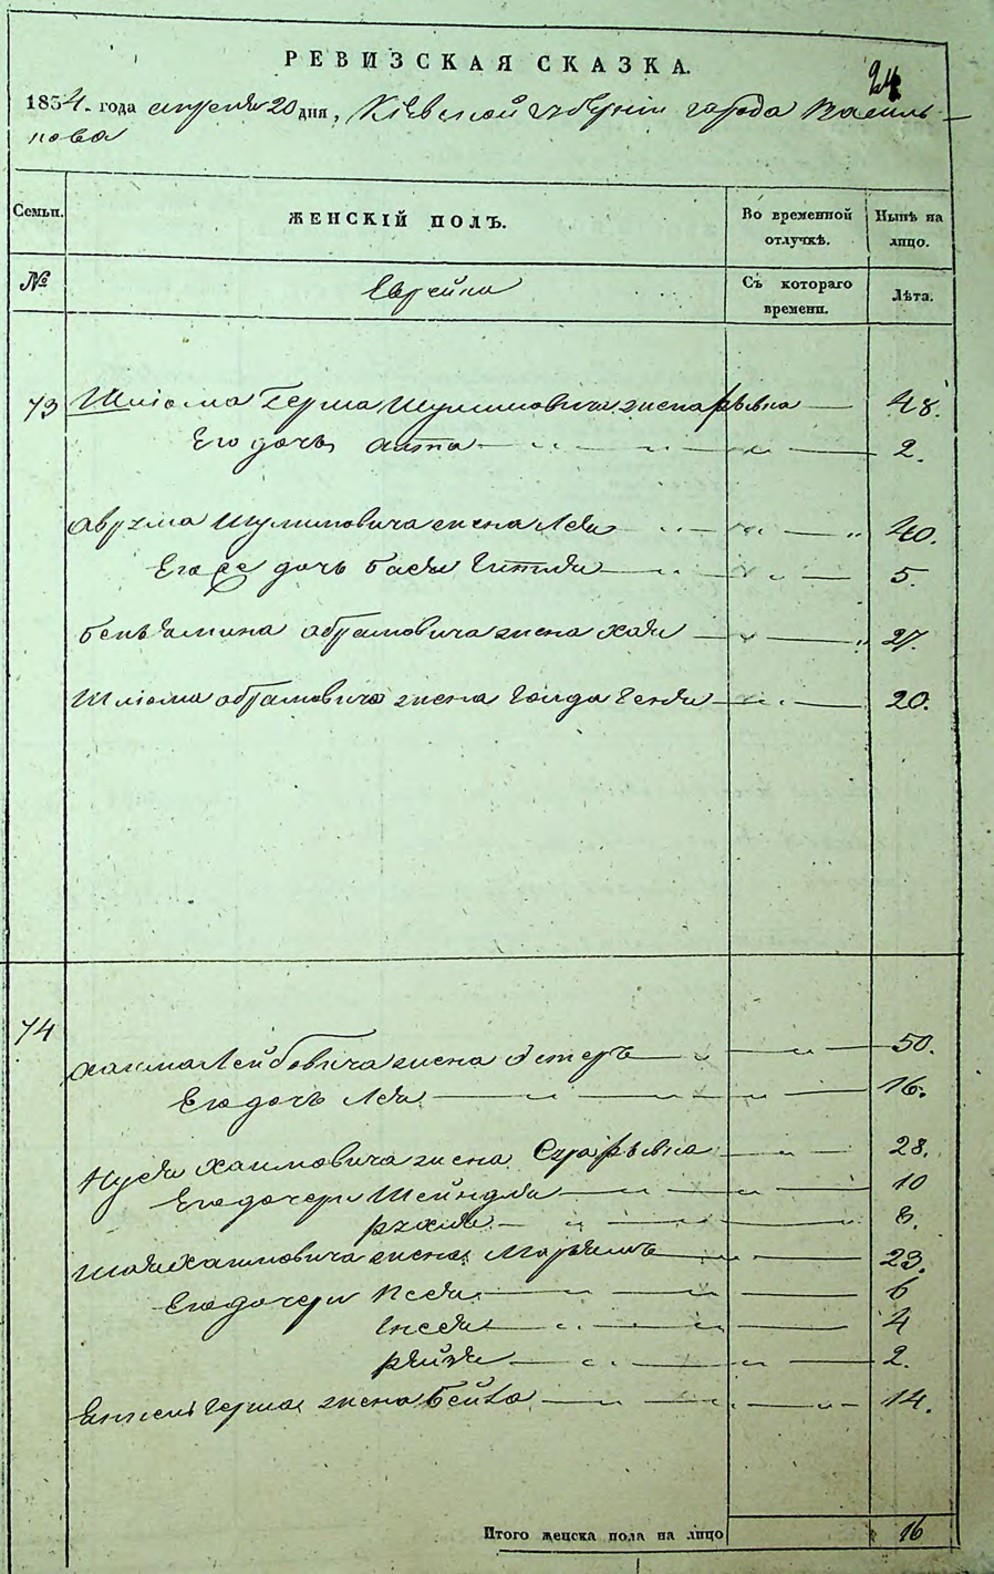 РЕВИЗСКАЯ СКАЗКА.
24
1854 года апреля 20 дня, Кіевской губерніи города Василь-
кова
Семьи. ЖЕНСКІЙ ПОЛЪ. Во временной отлучкѣ. Нынѣ на лицо.
№ Еврейки Съ котораго времени. Лѣта.
73 Шліома Герша Шулимовича жена Рывка 48.
Его дочь 2.
Аврума Шулимовича жена Лея 40.
Его дочь Бася Гитля 5.
Беньямина Абрамовича жена Хая 27.
Шліома Абрамовича жена Голда Геня 20.
74
Хаима Лейбовича жена Эстеръ 50.
Его дочь Лея 16.
Нуся Хаимовича жена Сура Рывка 28.
Его дочери Шейндля 10
Рухля 8.
Шая Хаимовича жена Марьямъ 23.
Его дочери Песя 6
Гнеся 4
Рейзя 2.
Герша жена Бейла 14.
Итого женска пола на лицо 16